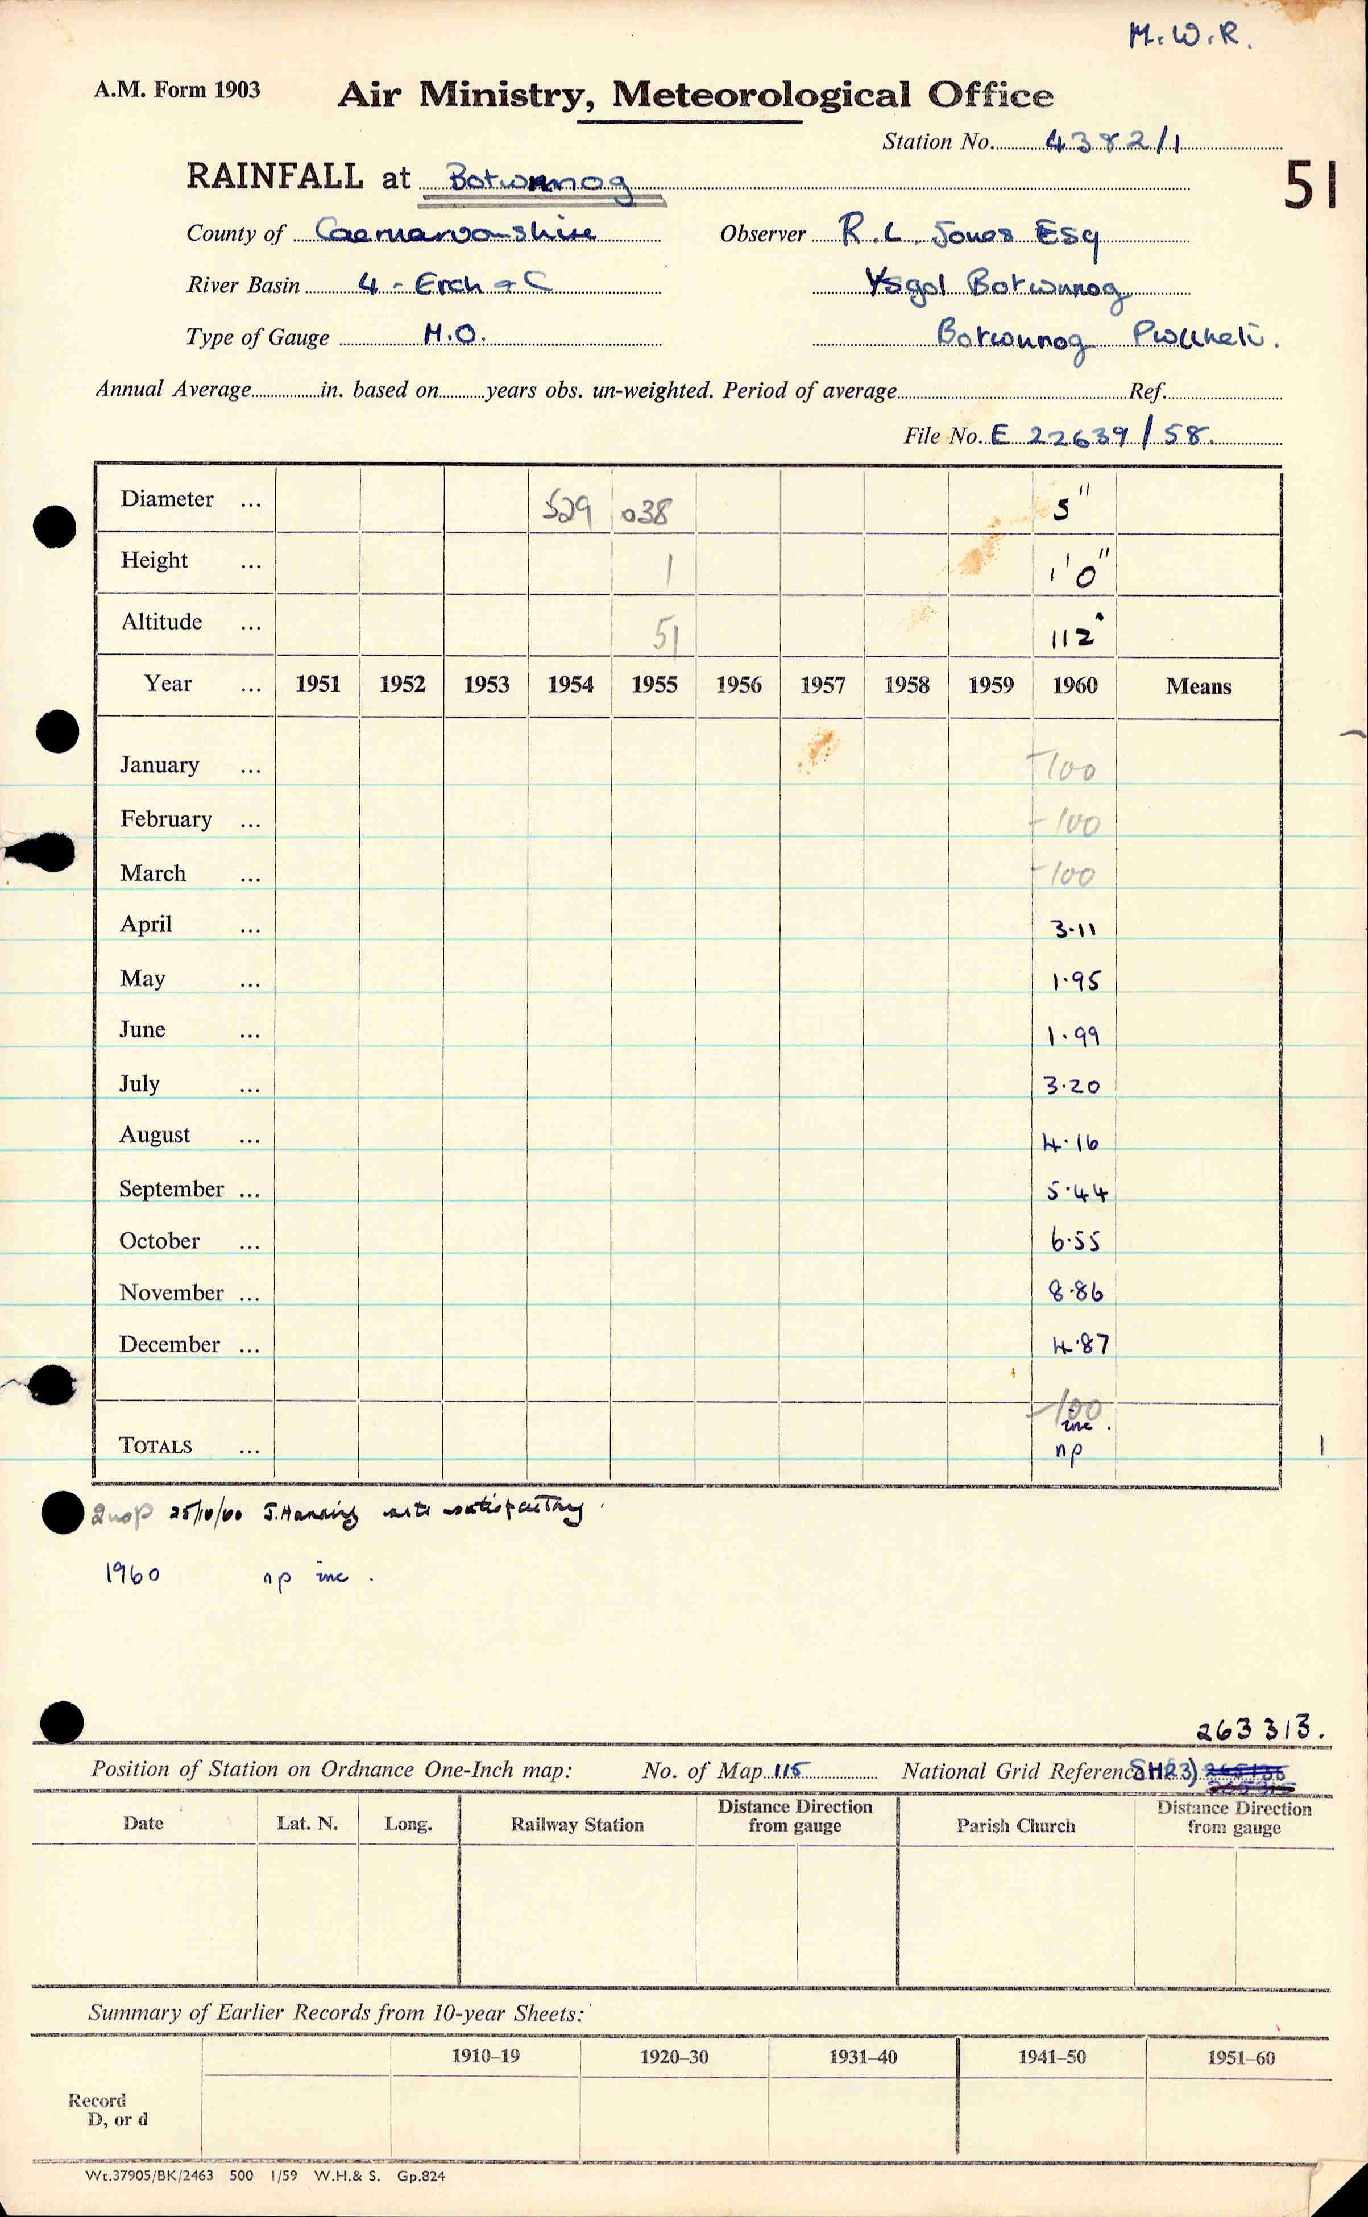 M.W.R.
A.M. Form 1903 Air Ministry, Meteorological Office
Station No. 4382/1
51
RAINFALL at Botwnnog
County of Caernarvonshire Observer R.L. Jones Esq
River Basin 4 - Erch + C Ysgol Botwnnog
Type of Gauge M.O. Botwnnog Pwllheli.
Annual Average in. based on years obs. un-weighted. Period of average Ref.
File No. E 22639/58.
Diameter ... 529 038 5"
Height ... 1 1'0"
Altitude ... 51 112
Year ... 1951 1952 1953 1954 1955 1956 1957 1958 1959 1960 Means
January ... -100
February ... -100
March ... -100
April ... 3.11
May ... 1.95
June ... 1.99
July ... 3.20
August ... 4.16
September ... 5.44
October ... 6.55
November ... 8.86
December ... 4.87
-100
inc.
TOTALS ... np
25/10/60 J. Harding site satisfactory
1960 np inc.
263313.
Position of Station on Ordnance One-Inch map: No. of Map 115 National Grid Reference SH(23)
Date Lat. N. Long. Railway Station Distance Direction from gauge Parish Church Distance Direction from gauge
Summary of Earlier Records from 10-year Sheets:
1910–19 1920–30 1931–40 1941–50 1951–60
Record
D, or d
Wt.37905/BK/2463 500 1/59 W.H.& S. Gp.824